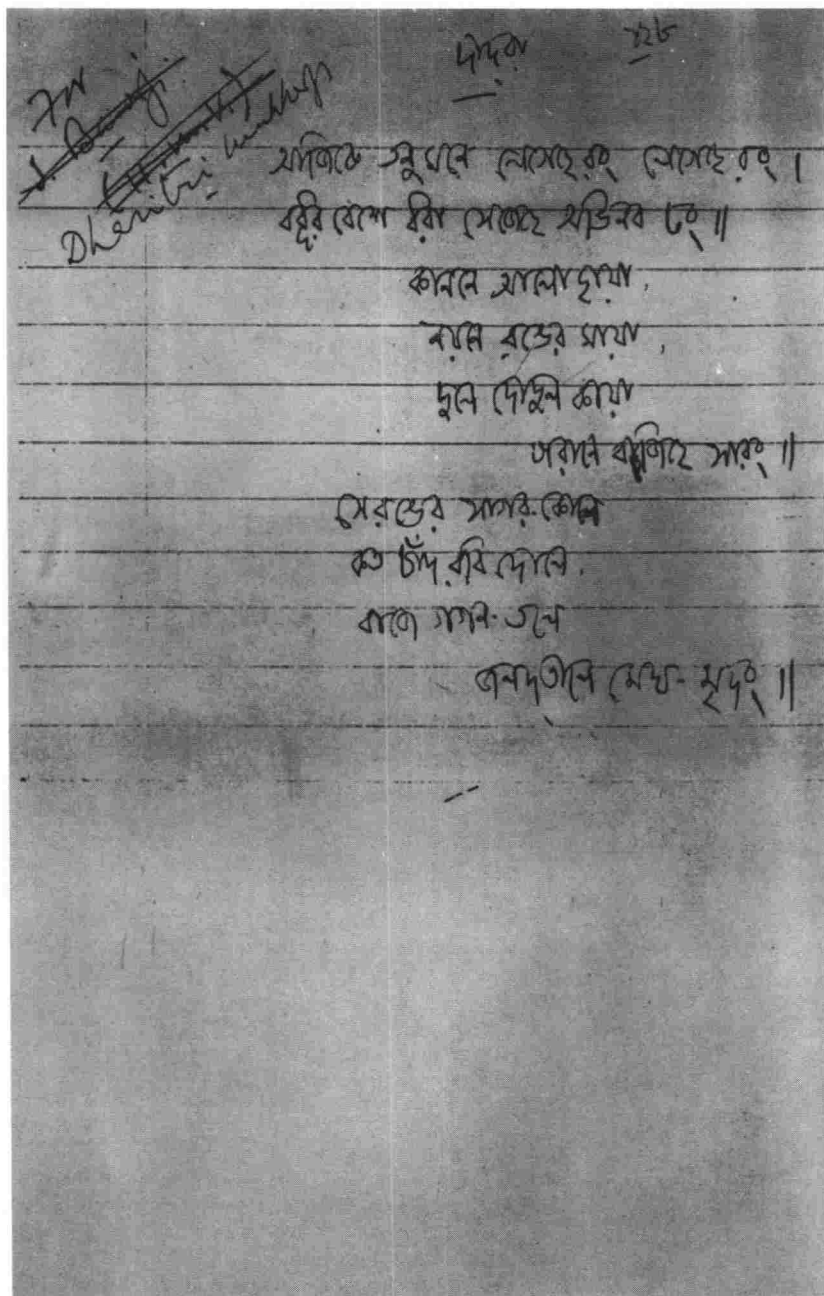 দাদরা
১২৮
Dharitri
আজিকে তনু মনে লেগেছে রং লেগেছে রং ।
বধূর বেশে ধরা সেজেছে অভিনব ঢং ॥
কাননে আলোছায়া,
নয়নে রঙের মায়া,
দুলে দোদুল কায়া
পরানে বাজিছে সারং ॥
সে রঙের সাগর-কোলে
কত চাঁদ রবি দোলে,
বাজে গগন-তলে
জলদতালে মেঘ-মৃদং ॥